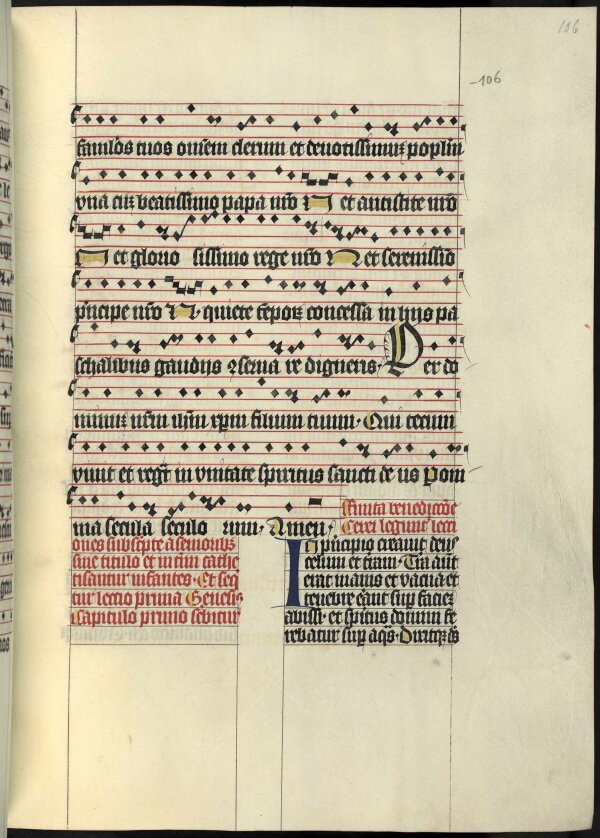 106
106
famulos tuos omnem clerum et deuotissimum poplm
vna cum beatissimo papa nro N et antistite nro
N et glorio sissimo rege nro N et serenissio
pncipe nro N. quiete tempor concessa in hijs pa
schalibus gaudijs conserua re digneris. Per do
minum nrm ihm xpm filium tuum. Qui tecum
viuit et regt in vnitate spiritus sancti de us Pom
nia secula seculo rum. Amen.
finita benedictoe
Cerei legunt lecti
ones subscpte a senioribs
sine titulo et interim cathe
tisantur infantes. Et seq
tur lectio prima Genesis
Capitulo primo scbitur
In principio creauit deus
celum et terram. Tra aut
erat inanis et vacua et
tenebre erant sup faciez
abissi. et spiritus domini fe
rebatur sup aqs. Dixitqz ds